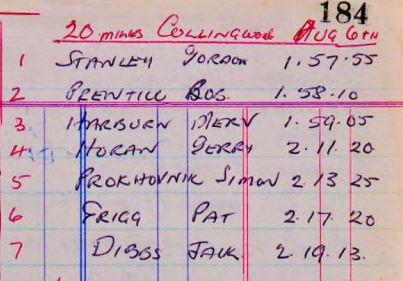 184
20 miles COLLINGWOOD AUG 6TH
1 STANLEY GORDON 1.57.55
2 PRENTICE BOB. 1.58.10
3 HARBURN MERV 1.59.05
4 HORAN GERRY 2.11.20
5 PROKHOVNIK SIMON 2 13 25
6 GRIGG PAT 2.17.20
7 DIBBS JACK. 2.19.13.